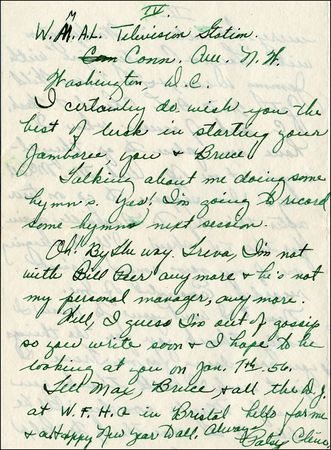 IV.
W. M. A. L. Television Station.
Conn. Ave. N. W.
Washington, D. C.
I certainly do wish you the
best of luck in starting your
Jamboree, you & Bruce.
Talking about me doing some
hymns. Yes! I'm going to record
some hymns next session.
Oh! By the way. Treva, I'm not
with Bill Peer any more & he's not
my personal manager, any more.
Well, I guess I'm out of gossip
so you write soon & I hope to be
looking at you on Jan. 7th. 56.
Tell Max, Bruce & all the D. J.
at W. F. H. G in Bristol hello for me
& a Happy New Year to all. Always
Patsy Cline